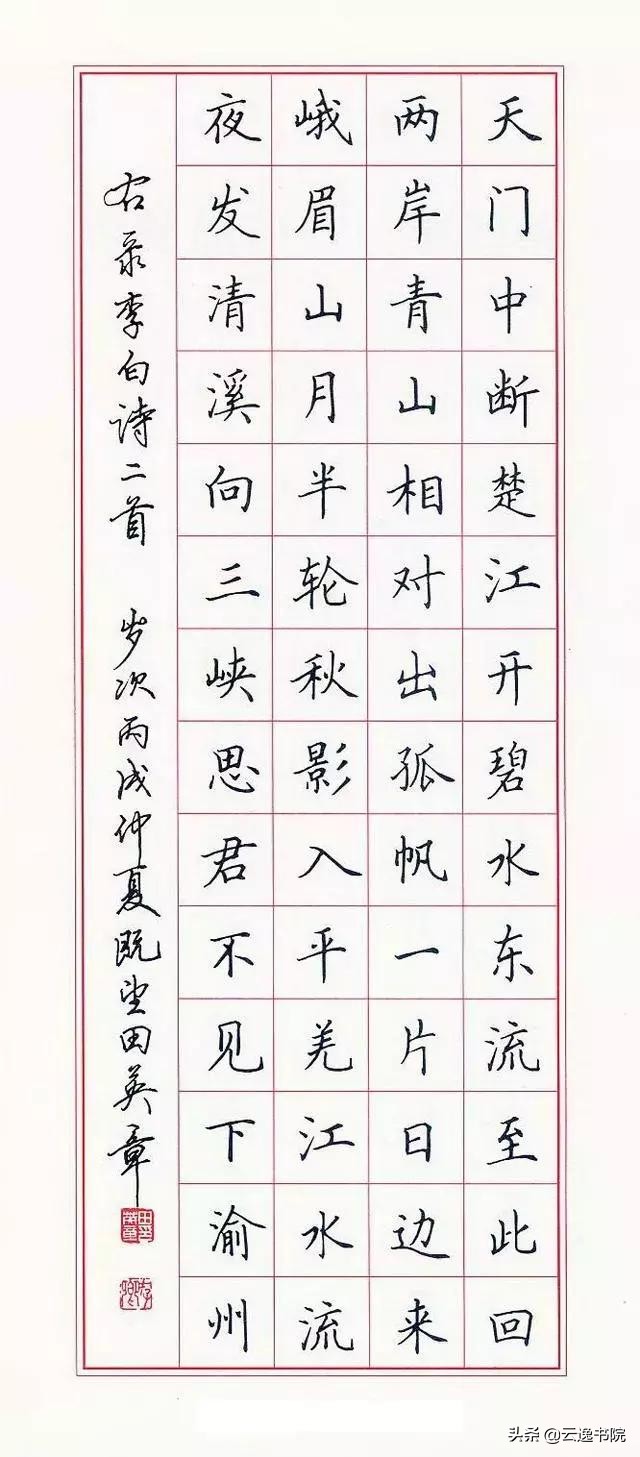 天门中断楚江开碧水东流至此回
两岸青山相对出孤帆一片日边来
峨眉山月半轮秋影入平羌江水流
夜发清溪向三峡思君不见下渝州
右录李白诗二首 岁次丙戌仲夏既望田英章
头条 @云逸书院